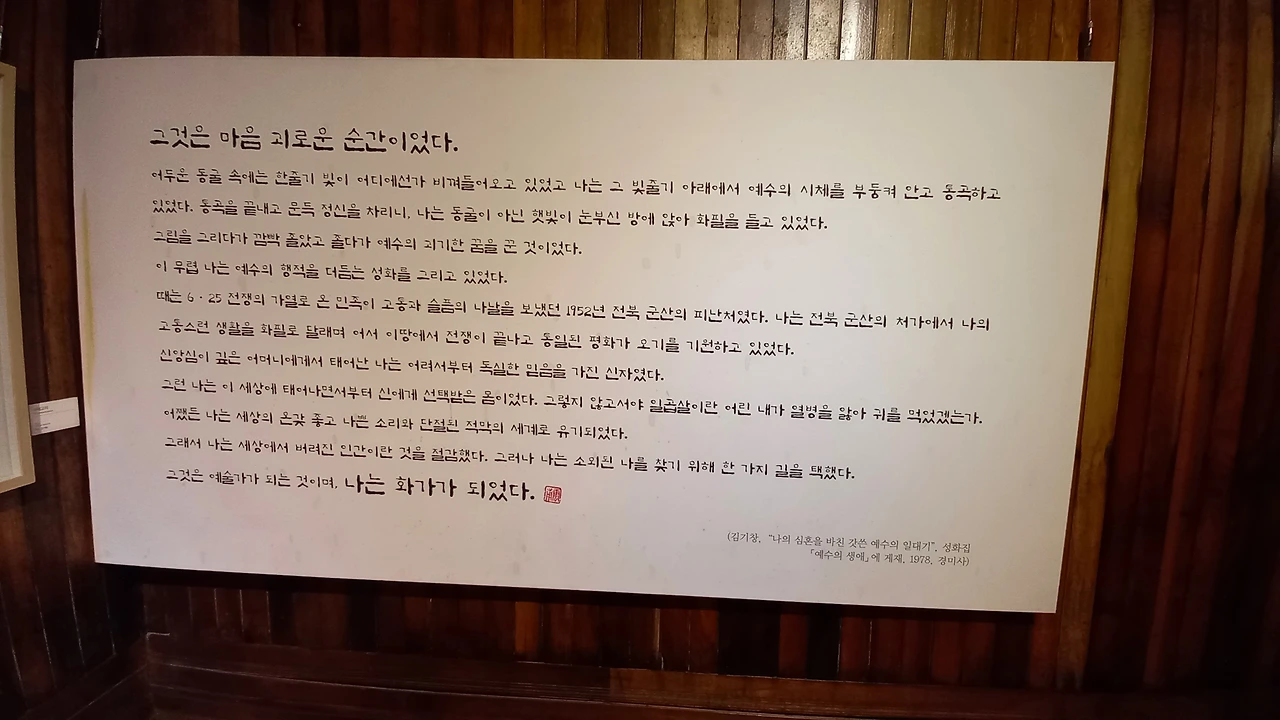 그것은 마음 괴로운 순간이었다.
어두운 동굴 속에는 한줄기 빛이 어디에선가 비껴들어오고 있었고 나는 그 빛줄기 아래에서 예수의 시체를 부둥켜 안고 통곡하고
있었다. 통곡을 끝내고 문득 정신을 차리니, 나는 동굴이 아닌 햇빛이 눈부신 방에 앉아 화필을 들고 있었다.
그림을 그리다가 깜빡 졸았고 졸다가 예수의 괴기한 꿈을 꾼 것이었다.
이 무렵 나는 예수의 행적을 더듬는 성화를 그리고 있었다.
때는 6·25 전쟁의 가열로 온 민족이 고통과 슬픔의 나날을 보냈던 1952년 전북 군산의 피난처였다. 나는 전북 군산의 처가에서 나의
고통스런 생활을 화필로 달래며 어서 이땅에서 전쟁이 끝나고 통일된 평화가 오기를 기원하고 있었다.
신앙심이 깊은 어머니에게서 태어난 나는 어려서부터 독실한 믿음을 가진 신자였다.
그런 나는 이 세상에 태어나면서부터 신에게 선택받은 몸이었다. 그렇지 않고서야 일곱살이란 어린 내가 열병을 앓아 귀를 먹었겠는가.
어쨌든 나는 세상의 온갖 좋고 나쁜 소리와 단절된 적막의 세계로 유기되었다.
그래서 나는 세상에서 버려진 인간이란 것을 절감했다. 그러나 나는 소외된 나를 찾기 위해 한 가지 길을 택했다.
그것은 예술가가 되는 것이며, 나는 화가가 되었다.
(김기창, "나의 심혼을 바친 갓쓴 예수의 일대기", 성화집
「예수의 생애」에 게재, 1978, 경미사)